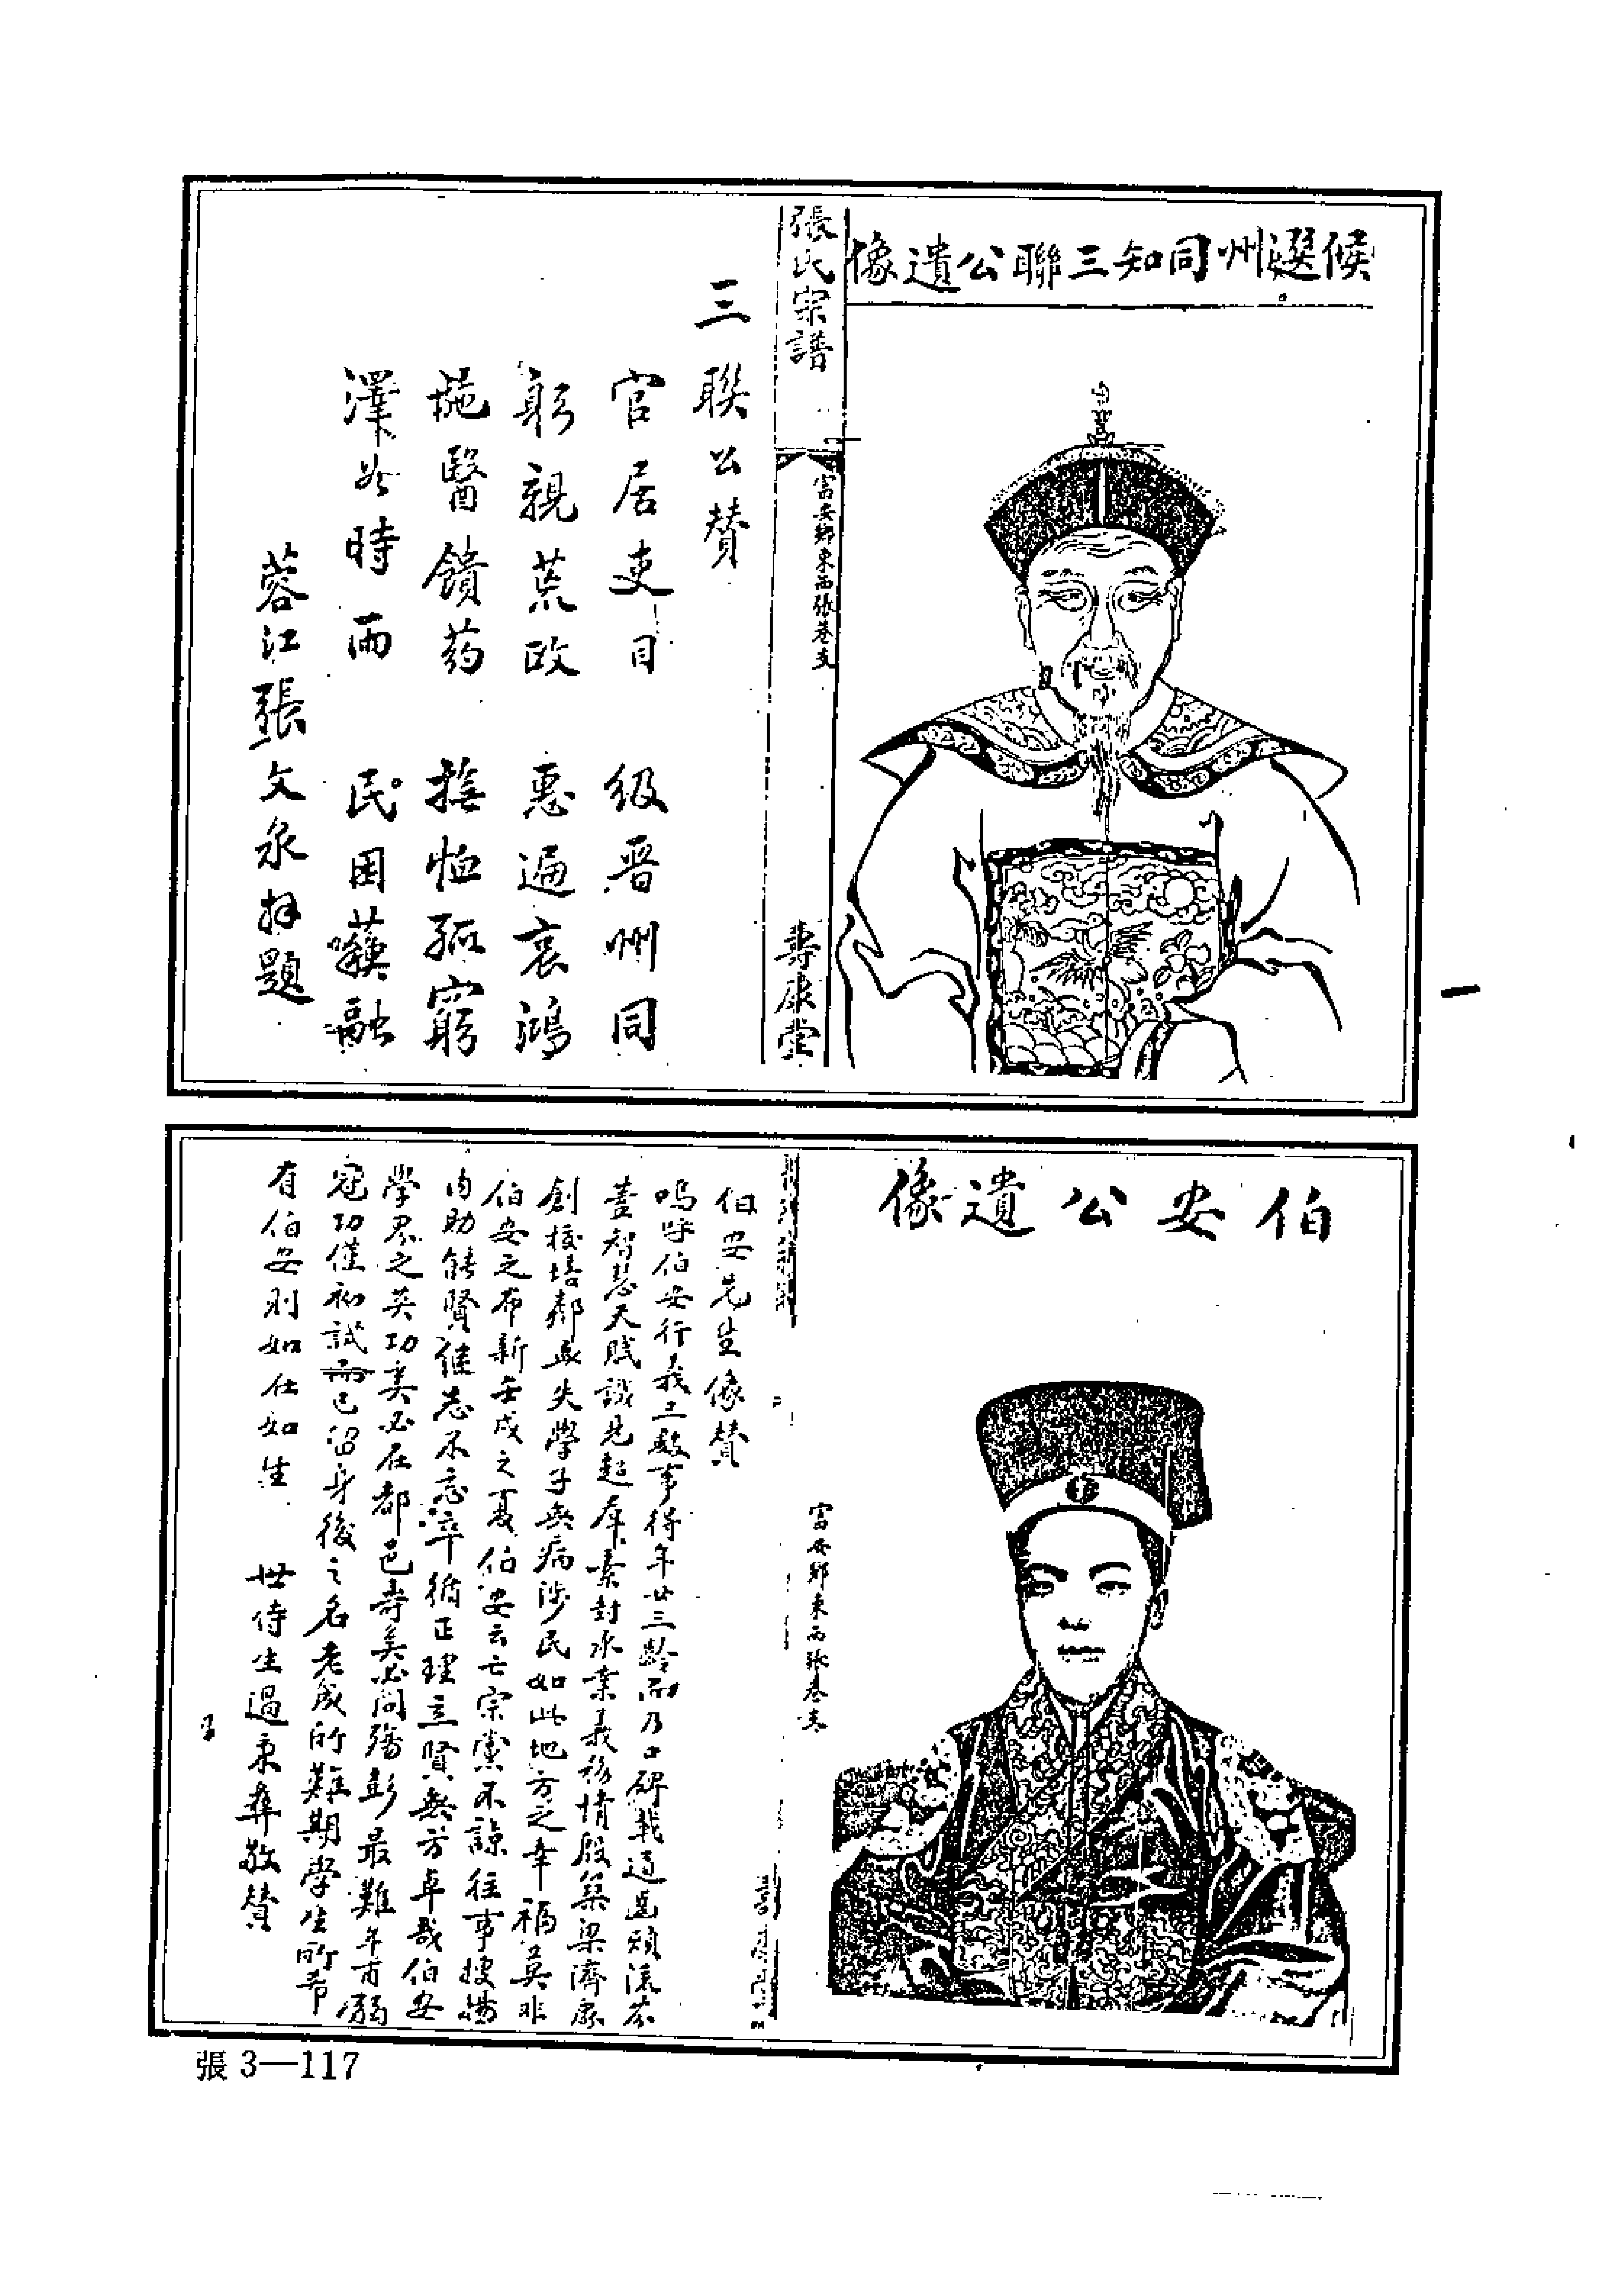 候選州同知三聯公遺像
張氏宗譜
富安鄉東西張巷支
壽康堂
三聯公贊
官居吏目　級晋州同
躬親荒政　惠遍哀鴻
施醫饋药　撫恤孤窮
澤如時雨　民困融
蓉江張文永拜題
伯安公遺像
富安鄉東西張巷支
伯安先生像贊
嗚呼伯安行義二三事得年廿三齡而乃口碑載道邑頌流芬
智慧天賦識見超群素封承業義務情殷築梁濟眾
創校培鄰長失學子無病涉民如此地方之幸福莫非
伯安之布新壬戌之夏伯安云亡宗黨不諒往事搜揚
內助能賢繼志不忘卒循正理立賢無方卓哉伯安
學界之英功奚必在都邑壽奚必問殤彭最難年方弱
冠功僅初試而已留身後之名老成所難期學生所希
有伯安則如仕如生
世侍生過秉彝敬贊
張3—117